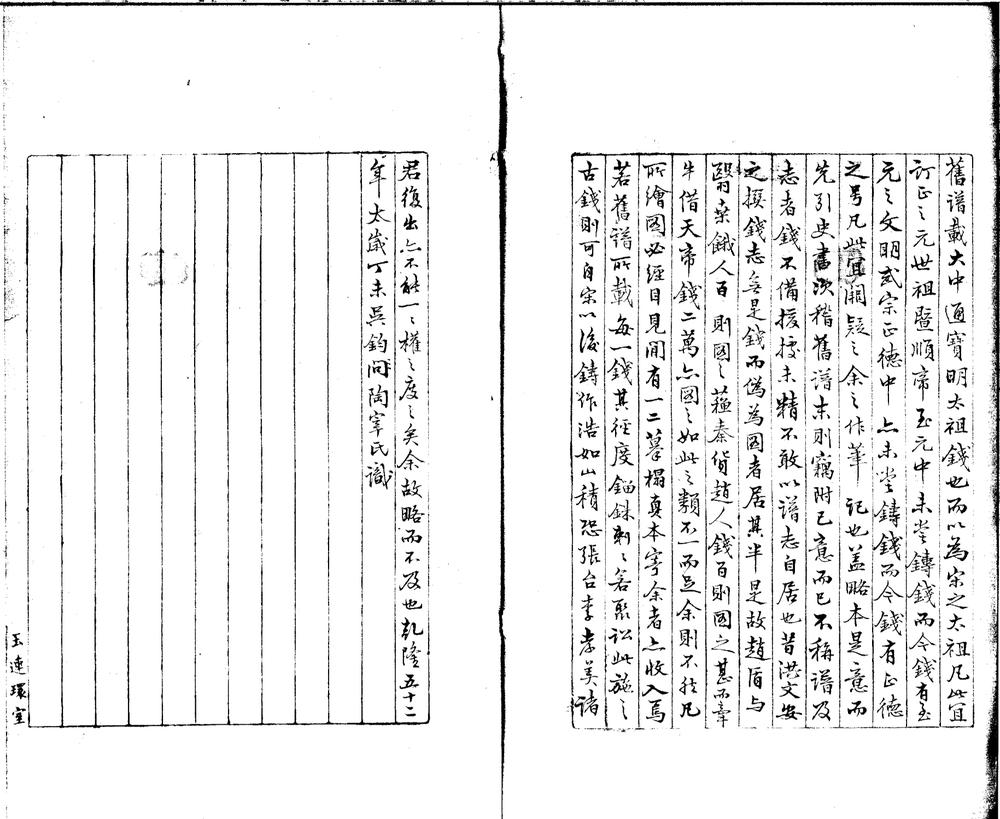 舊譜載大中通寶明太祖錢也而以為宋之太祖凡此宜
訂正之元世祖暨順帝至元中未嘗鑄錢而今錢有至
元之文明武宗正德中亦未嘗鑄錢而今錢有正德
之号凡此宜闕疑之余之作筆記也盖略本是意而
先引史書次稽舊譜末則竊附己意而已不稱譜及
志者錢不備援據未精不敢以譜志自居也昔洪文安
之撰錢志無是錢而偽為圖者居其半是故趙盾与
翳桑餓人百則圖之蘓秦貨趙人錢百則圖之甚而牽
牛借天帝錢二萬亦圖之如此之類不一而足余則不然凡
所繪圖必經目見間有一二摹搨真本寄余者亦收入焉
若舊譜所載每一錢其徑度錙銖剌剌若聚訟此施之
古錢則可自宋以後鑄作浩如山積恐張台李孝美諸
君復出亦不能一一權之度之矣余故略而不及也乾隆五十二
年太嵗丁未吳鈞問陶宰氏識
玉連環室